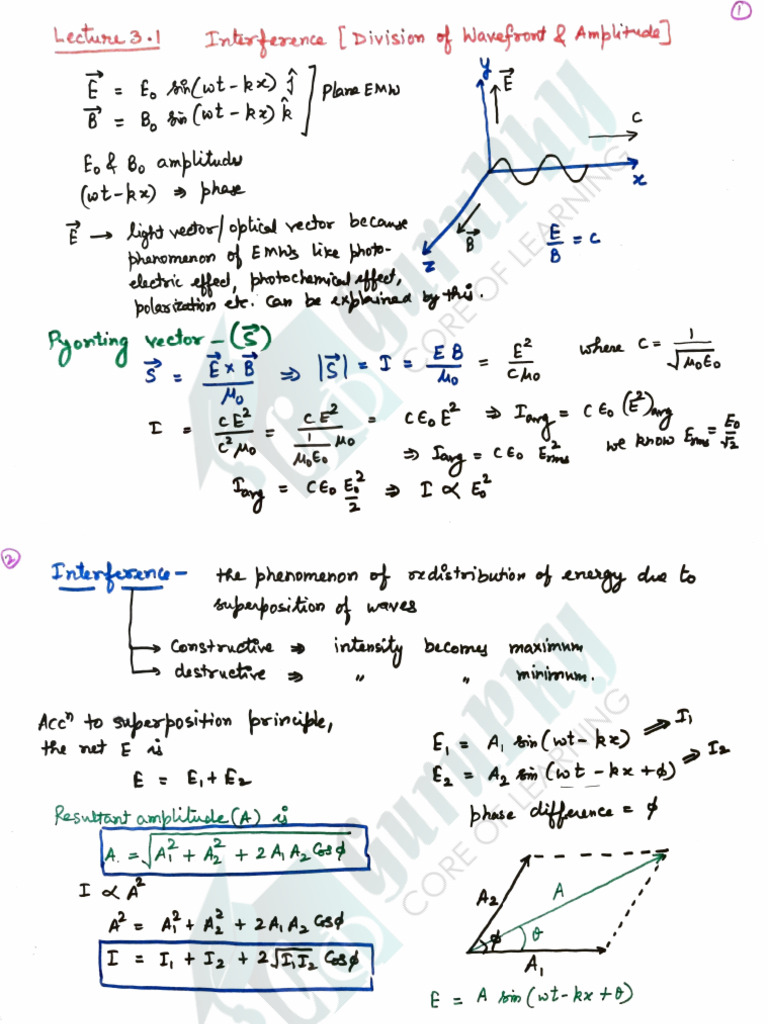 1
Lecture 3.1 Interference [Division of Wavefront & Amplitude]
E⃗ = E₀ sin(wt - kx) ĵ
B⃗ = B₀ sin(wt - kx) k̂ ] Plane EMW
y E⃗
C
x
B⃗
z
E₀ & B₀ amplitudes
(wt - kx) ⇒ phase
E⃗ → light vector/optical vector because
phenomenon of EMWs like photo-
electric effect, photochemical effect,
polarization etc. can be explained by this.
E/B = c
Pyonting vector - (S⃗)
S⃗ = E⃗ × B⃗/μ₀ ⇒ |S⃗| = I = EB/μ₀ = E²/cμ₀ where c = 1/√μ₀ε₀
I = cE²/c²μ₀ = cE²/(1/μ₀ε₀ μ₀) = cε₀E² ⇒ Iavg = cε₀(E²)avg
⇒ Iavg = cε₀ E²rms we know Erms = E₀/√2
Iavg = cε₀ E₀²/2 ⇒ I ∝ E₀²
2
Interference - the phenomenon of redistribution of energy due to
superposition of waves
→ Constructive ⇒ intensity becomes maximum
→ destructive ⇒ " " minimum.
Accⁿ to superposition principle,
the net E is
E = E₁ + E₂
E₁ = A₁ sin(wt - kx) ⇒ I₁
E₂ = A₂ sin(wt - kx + ϕ) ⇒ I₂
phase difference = ϕ
Resultant amplitude (A) is
A. = √A₁² + A₂² + 2A₁A₂ Cosϕ
I ∝ A²
A² = A₁² + A₂² + 2A₁A₂ Cosϕ
I = I₁ + I₂ + 2√I₁I₂ Cosϕ
A₂ A
ϕ θ
A₁
E = A sin(wt - kx + θ)
Guruphy
CORE OF LEARNING
Guruphy
CORE OF LEARNING